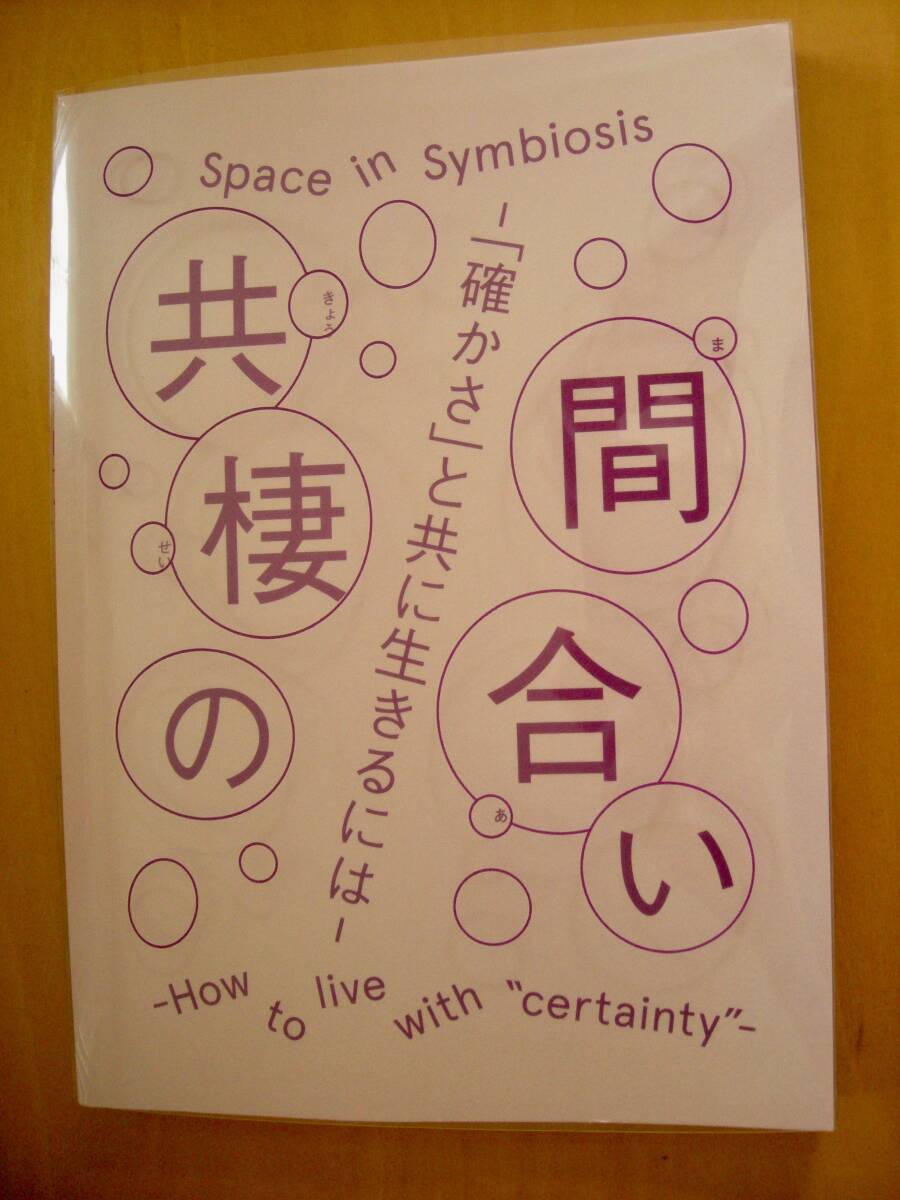 Space in Symbiosis
共棲の
きょう
せい
間合い
ま
あ
-「確かさ」と共に生きるには-
-How to live with "certainty"-